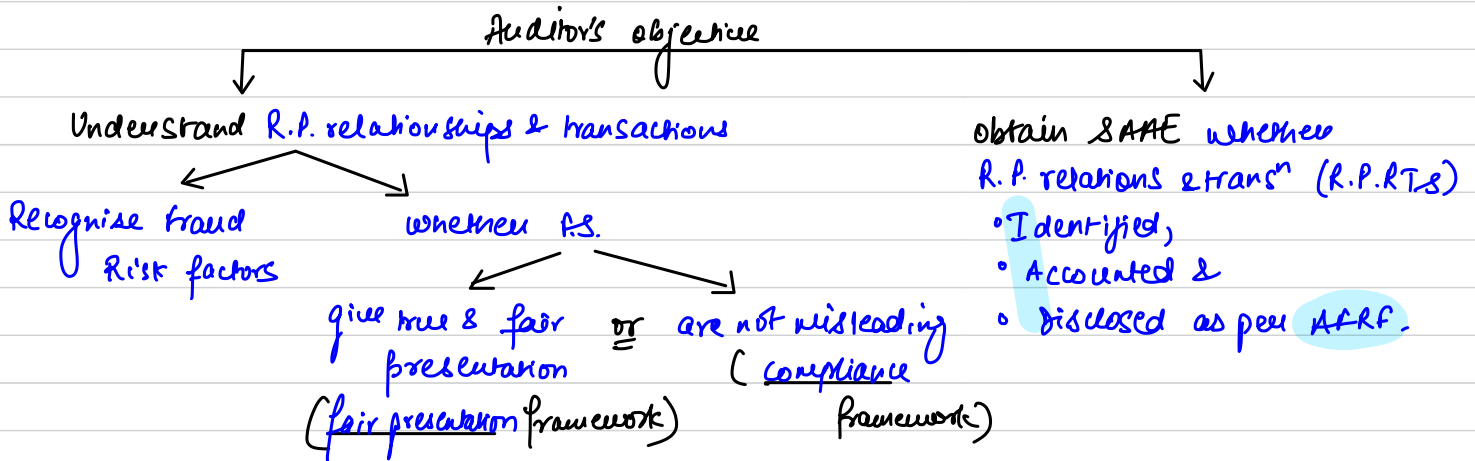 Auditor's objective
Understand R.P. relationships & transactions
Recognise fraud
Risk factors
whether F.S.
give true & fair
presentation
(fair presentation framework)
or
are not misleading
(compliance
framework)
obtain SAAE whether
R.P. relations & transⁿ (R.P.RTS)
• Identified,
• Accounted &
• Disclosed as per AFRF.